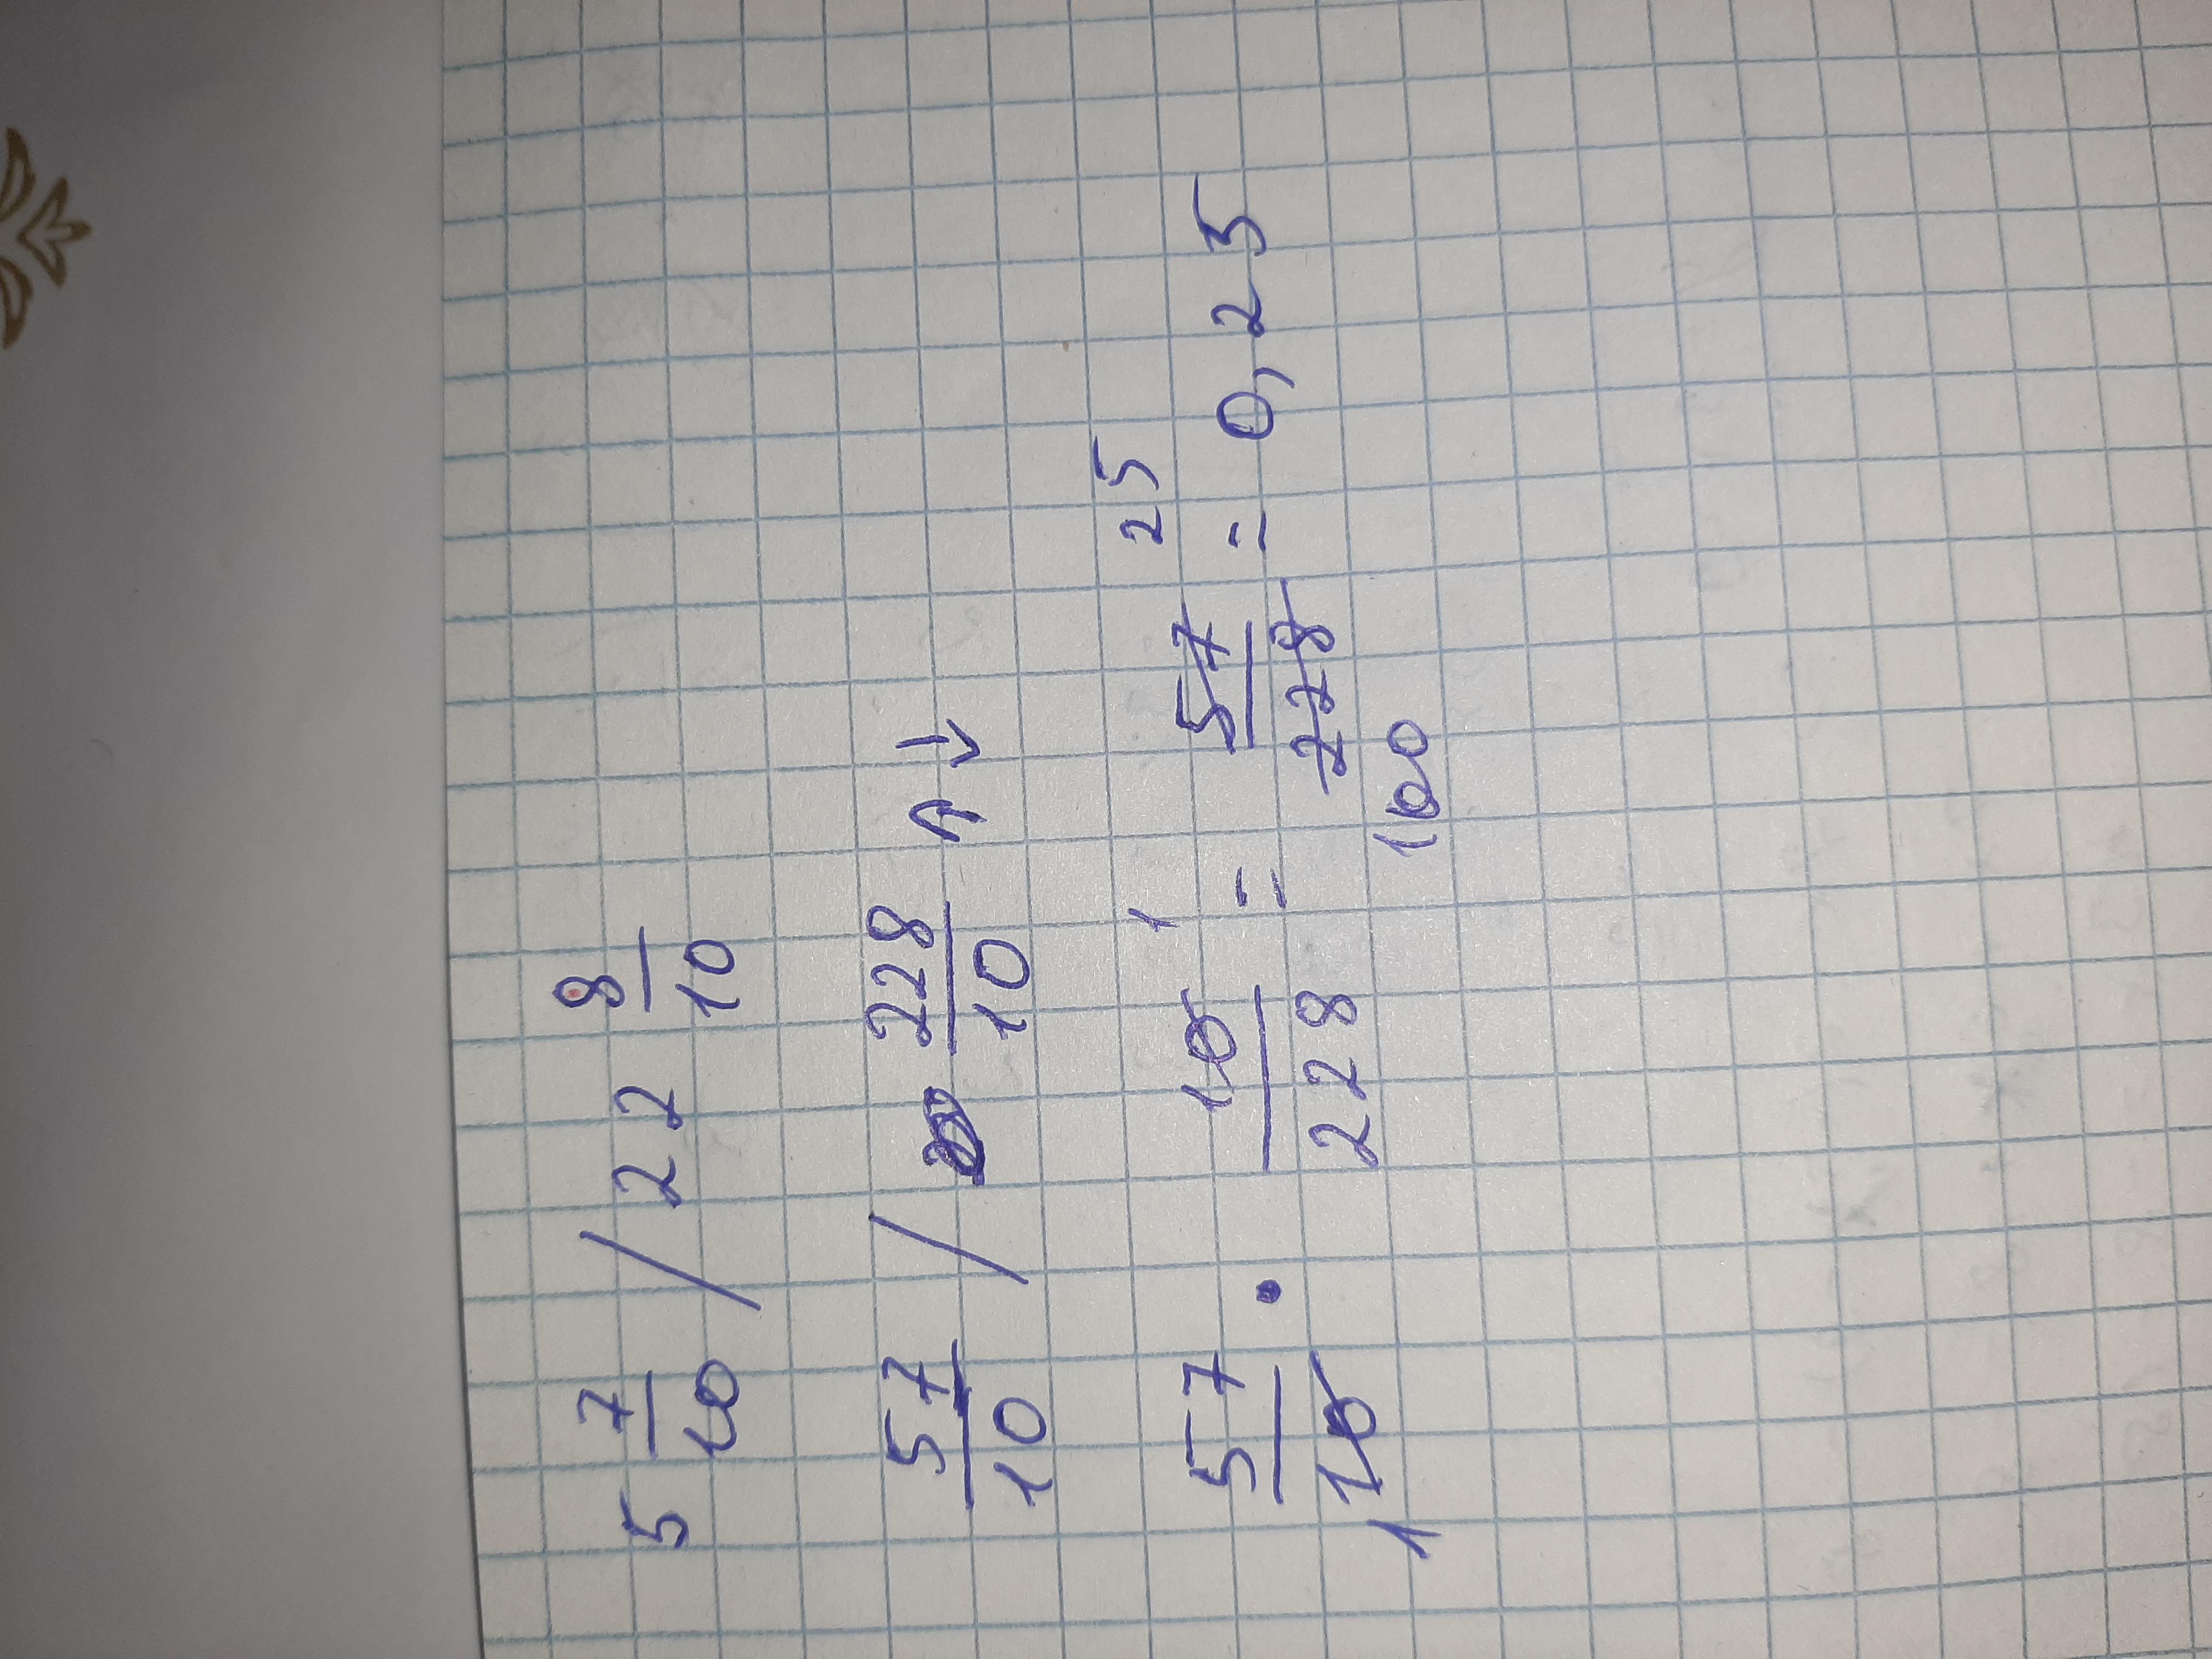 5 7/10 / 22 8/10
57/10 / 228/10 ↑↓
57/10 1 · 10/228 1 = 57/228 25/100 = 0,25